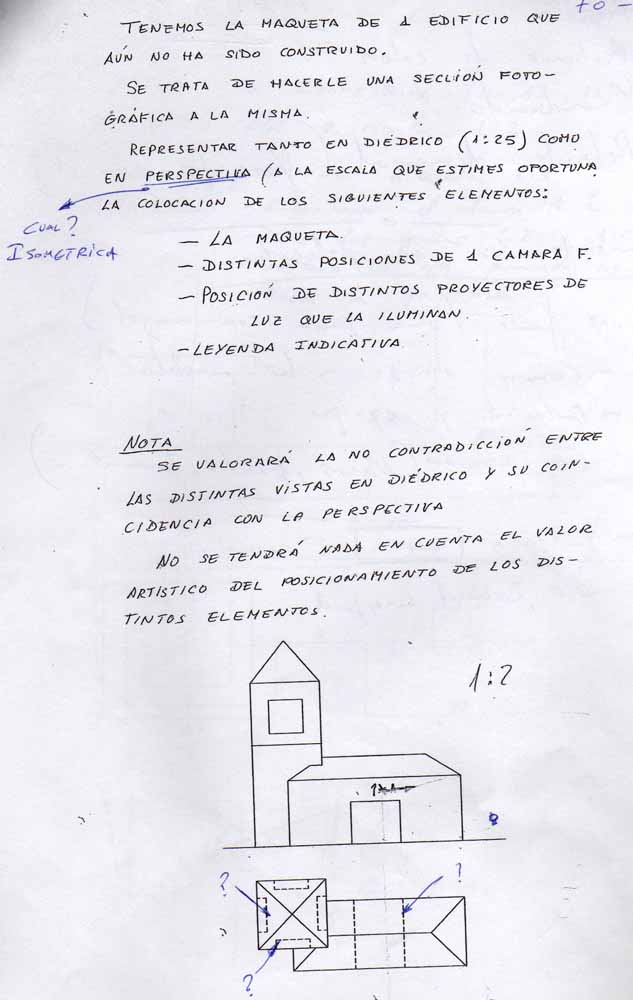 70-
TENEMOS LA MAQUETA DE 1 EDIFICIO QUE
AÚN NO HA SIDO CONSTRUIDO.
SE TRATA DE HACERLE UNA SECCIÓN FOTO-
GRÁFICA A LA MISMA.
REPRESENTAR TANTO EN DIÉDRICO (1:25) COMO
EN PERSPECTIVA (A LA ESCALA QUE ESTIMES OPORTUNA
LA COLOCACION DE LOS SIGUIENTES ELEMENTOS:
CUAL?
ISOMETRICA
- LA MAQUETA.
- DISTINTAS POSICIONES DE 1 CAMARA F.
- POSICIÓN DE DISTINTOS PROYECTORES DE
LUZ QUE LA ILUMINAN.
- LEYENDA INDICATIVA
NOTA
SE VALORARÁ LA NO CONTRADICCIÓN ENTRE
LAS DISTINTAS VISTAS EN DIÉDRICO Y SU COIN-
CIDENCIA CON LA PERSPECTIVA
NO SE TENDRÁ NADA EN CUENTA EL VALOR
ARTÍSTICO DEL POSICIONAMIENTO DE LOS DIS-
TINTOS ELEMENTOS.
1:2
?
?
?